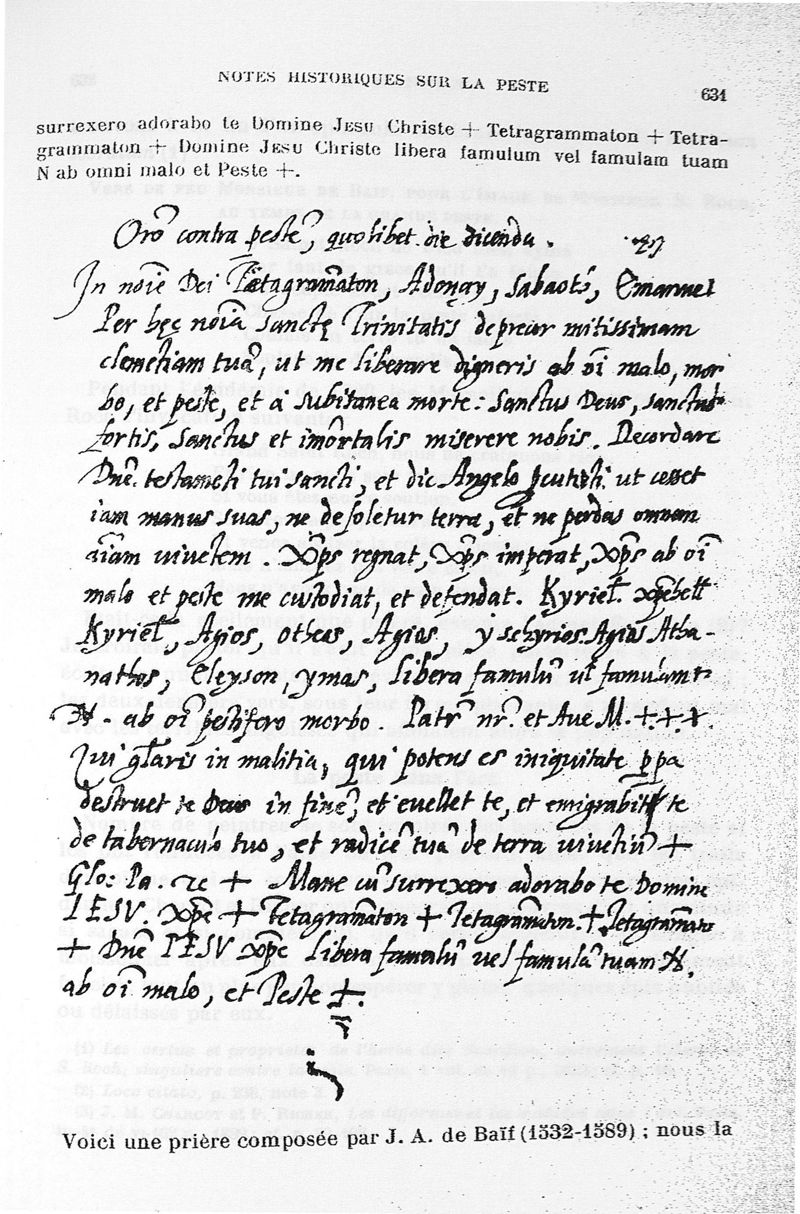 NOTES HISTORIQUES SUR LA PESTE
631
surrexero adorabo te Domine JESU Christe + Tetragrammaton + Tetra-
grammaton + Domine JESU Christe libera famulum vel famulam tuam
N ab omni malo et Peste +.
Orõ contra pestẽ, quolibet die dicenda.
In noĩe Dei Tetagram̃aton, Adonay, Sabaot, Emanuel
Per hęc noĩa Sanctę Trinitatis deprecor mitissimam
clemẽtiam tuã, ut me liberare digneris ab oĩ malo, mor
bo, et pestẽ, et á subitanea morte: Sanctus Deus, sanctus
fortis, Sanctus et im̃ortalis miserere nobis. Recordare
Dñe testamẽti tui sancti, et dic Angelo ut cesset
iam manus suas, ne desoletur terra, et ne perdas omnem
aĩam uiuẽtem. Xp̃s regnat, Xp̃s imperat, Xp̃s ab oĩ
malo et peste me custodiat, et defendat. Kyriel̃.
Kyriel̃, Agios, otheos, Agios, yschyrios. Agios Atha-
nathos, Eleyson, ymas, libera famulũ ul̃ famulam
N. ab oĩ pestifero morbo. Patr̃ nr̃. et Aue M. + + +.
Qui gl̃aris in malitia, qui potens es iniquitate p pa
destruet te Deus in finẽ, et euellet te, et emigrabit te
de tabernaculo tuo, et radicẽ tuã de terra uiuẽtiũ +
Glo: Pa. + Mane cũ surrexero adorabo te Domine
IESV. Xp̃e + Tetagram̃aton + Tetagram̃aton. + Tetagram̃ato
+ Dñe IESV Xp̃e Libera famulũ uel famulã tuam N.
ab oĩ malo, et Peste +.
Voici une prière composée par J. A. de Baïf (1532-1589) ; nous la